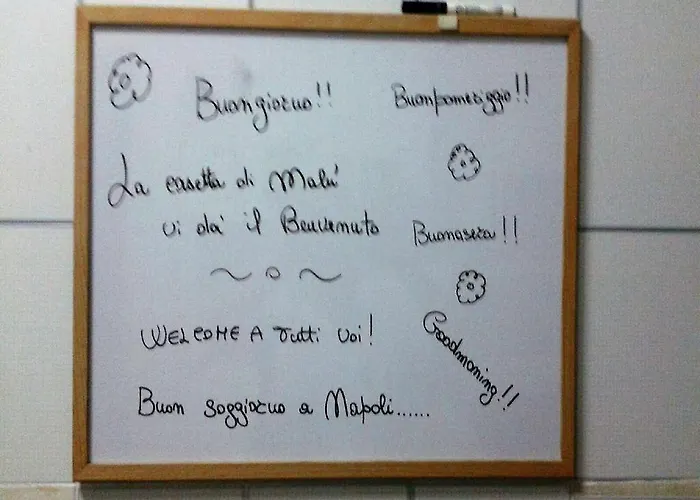 Buongiorno!!
Buonpomeriggio!!
La casetta di Malù
vi dà il Benvenuto
Buonasera!!
WELCOME A Tutti voi!
Goodmorning!!
Buon soggiorno a Napoli......